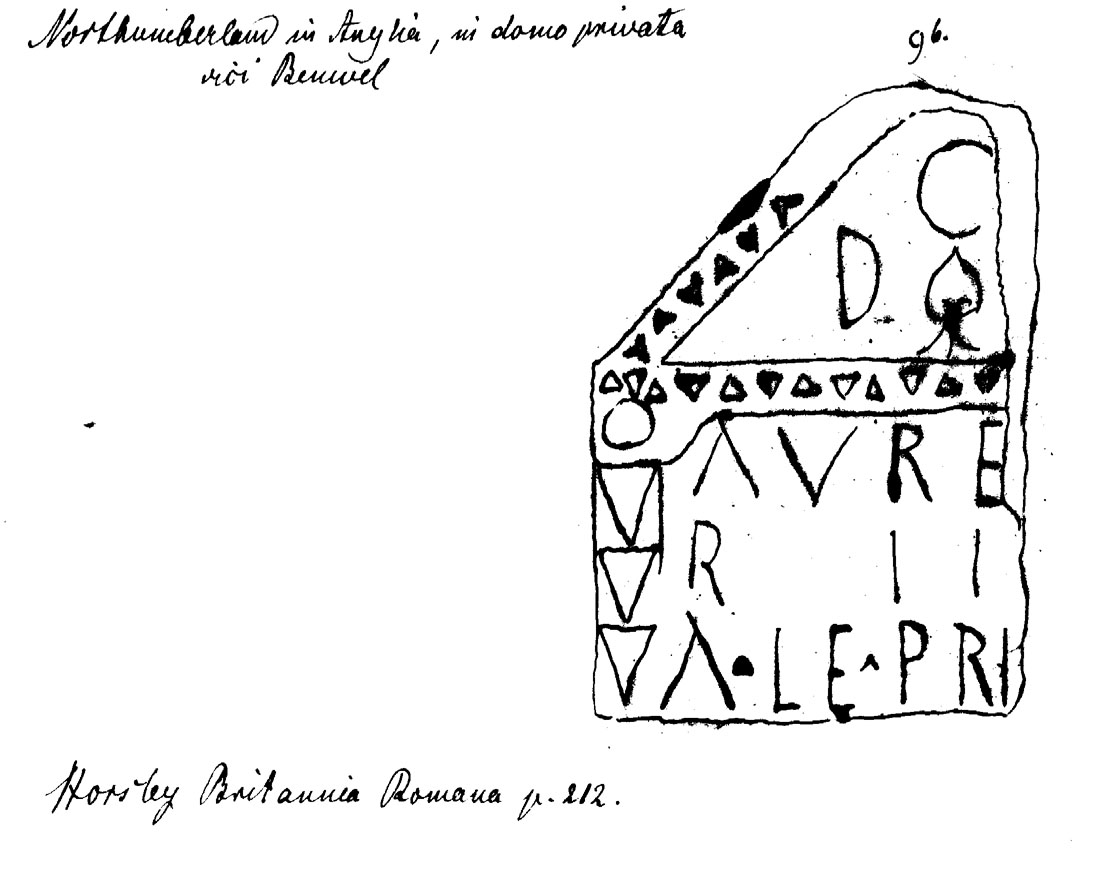 Northumberland in Anglia, in domo privata
vici Benwel
96.
D
AVRE
R I I
A•LE^PRI
Horsley Britannia Romana p. 212.